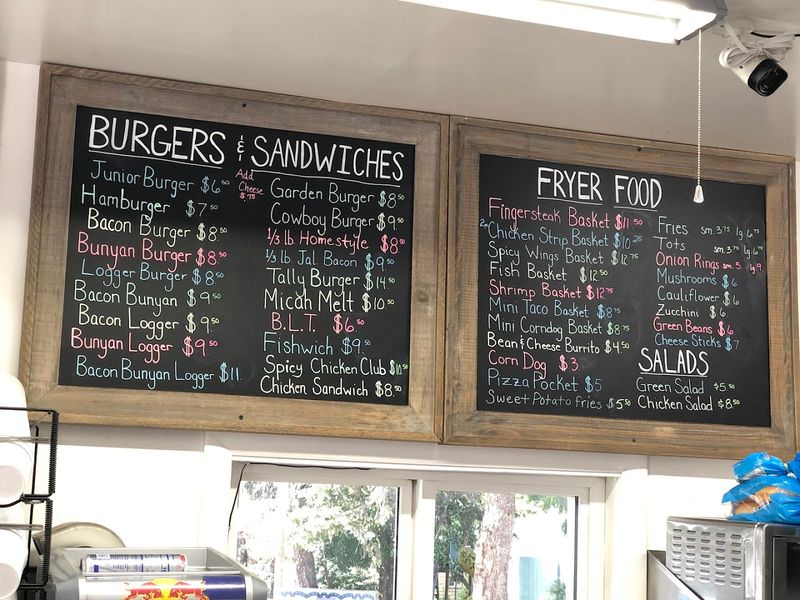 BURGERS & SANDWICHES
Junior Burger $6.50
Hamburger $7.50
Bacon Burger $8.50
Bunyan Burger $8.50
Logger Burger $8.50
Bacon Bunyan $9.50
Bacon Logger $9.50
Bunyan Logger $9.50
Bacon Bunyan Logger $11.
Add
Cheese
$.75
Garden Burger $8.50
Cowboy Burger $9.50
1/3 lb. Homestyle $8.50
1/3 lb. Jal. Bacon $9.50
Tally Burger $14.50
Micah Melt $10.50
B.L.T. $6.50
Fishwich $9.50
Spicy Chicken Club $10.50
Chicken Sandwich $8.50
FRYER FOOD
Fingersteak Basket $11.50
Chicken Strip Basket $10.25
Spicy Wings Basket $12.75
Fish Basket $12.50
Shrimp Basket $12.75
Mini Taco Basket $8.75
Mini Corndog Basket $8.75
Bean & Cheese Burrito $4.50
Corn Dog $3
Pizza Pocket $5
Sweet Potato fries $5.50
Fries sm. 3.75 lg. 6.75
Tots sm. 3.75 lg. 6.75
Onion Rings sm. 5. lg. 9.
Mushrooms $6
Cauliflower $6
Zucchini $6
Green Beans $6
Cheese Sticks $7
SALADS
Green Salad $5.50
Chicken Salad $8.50